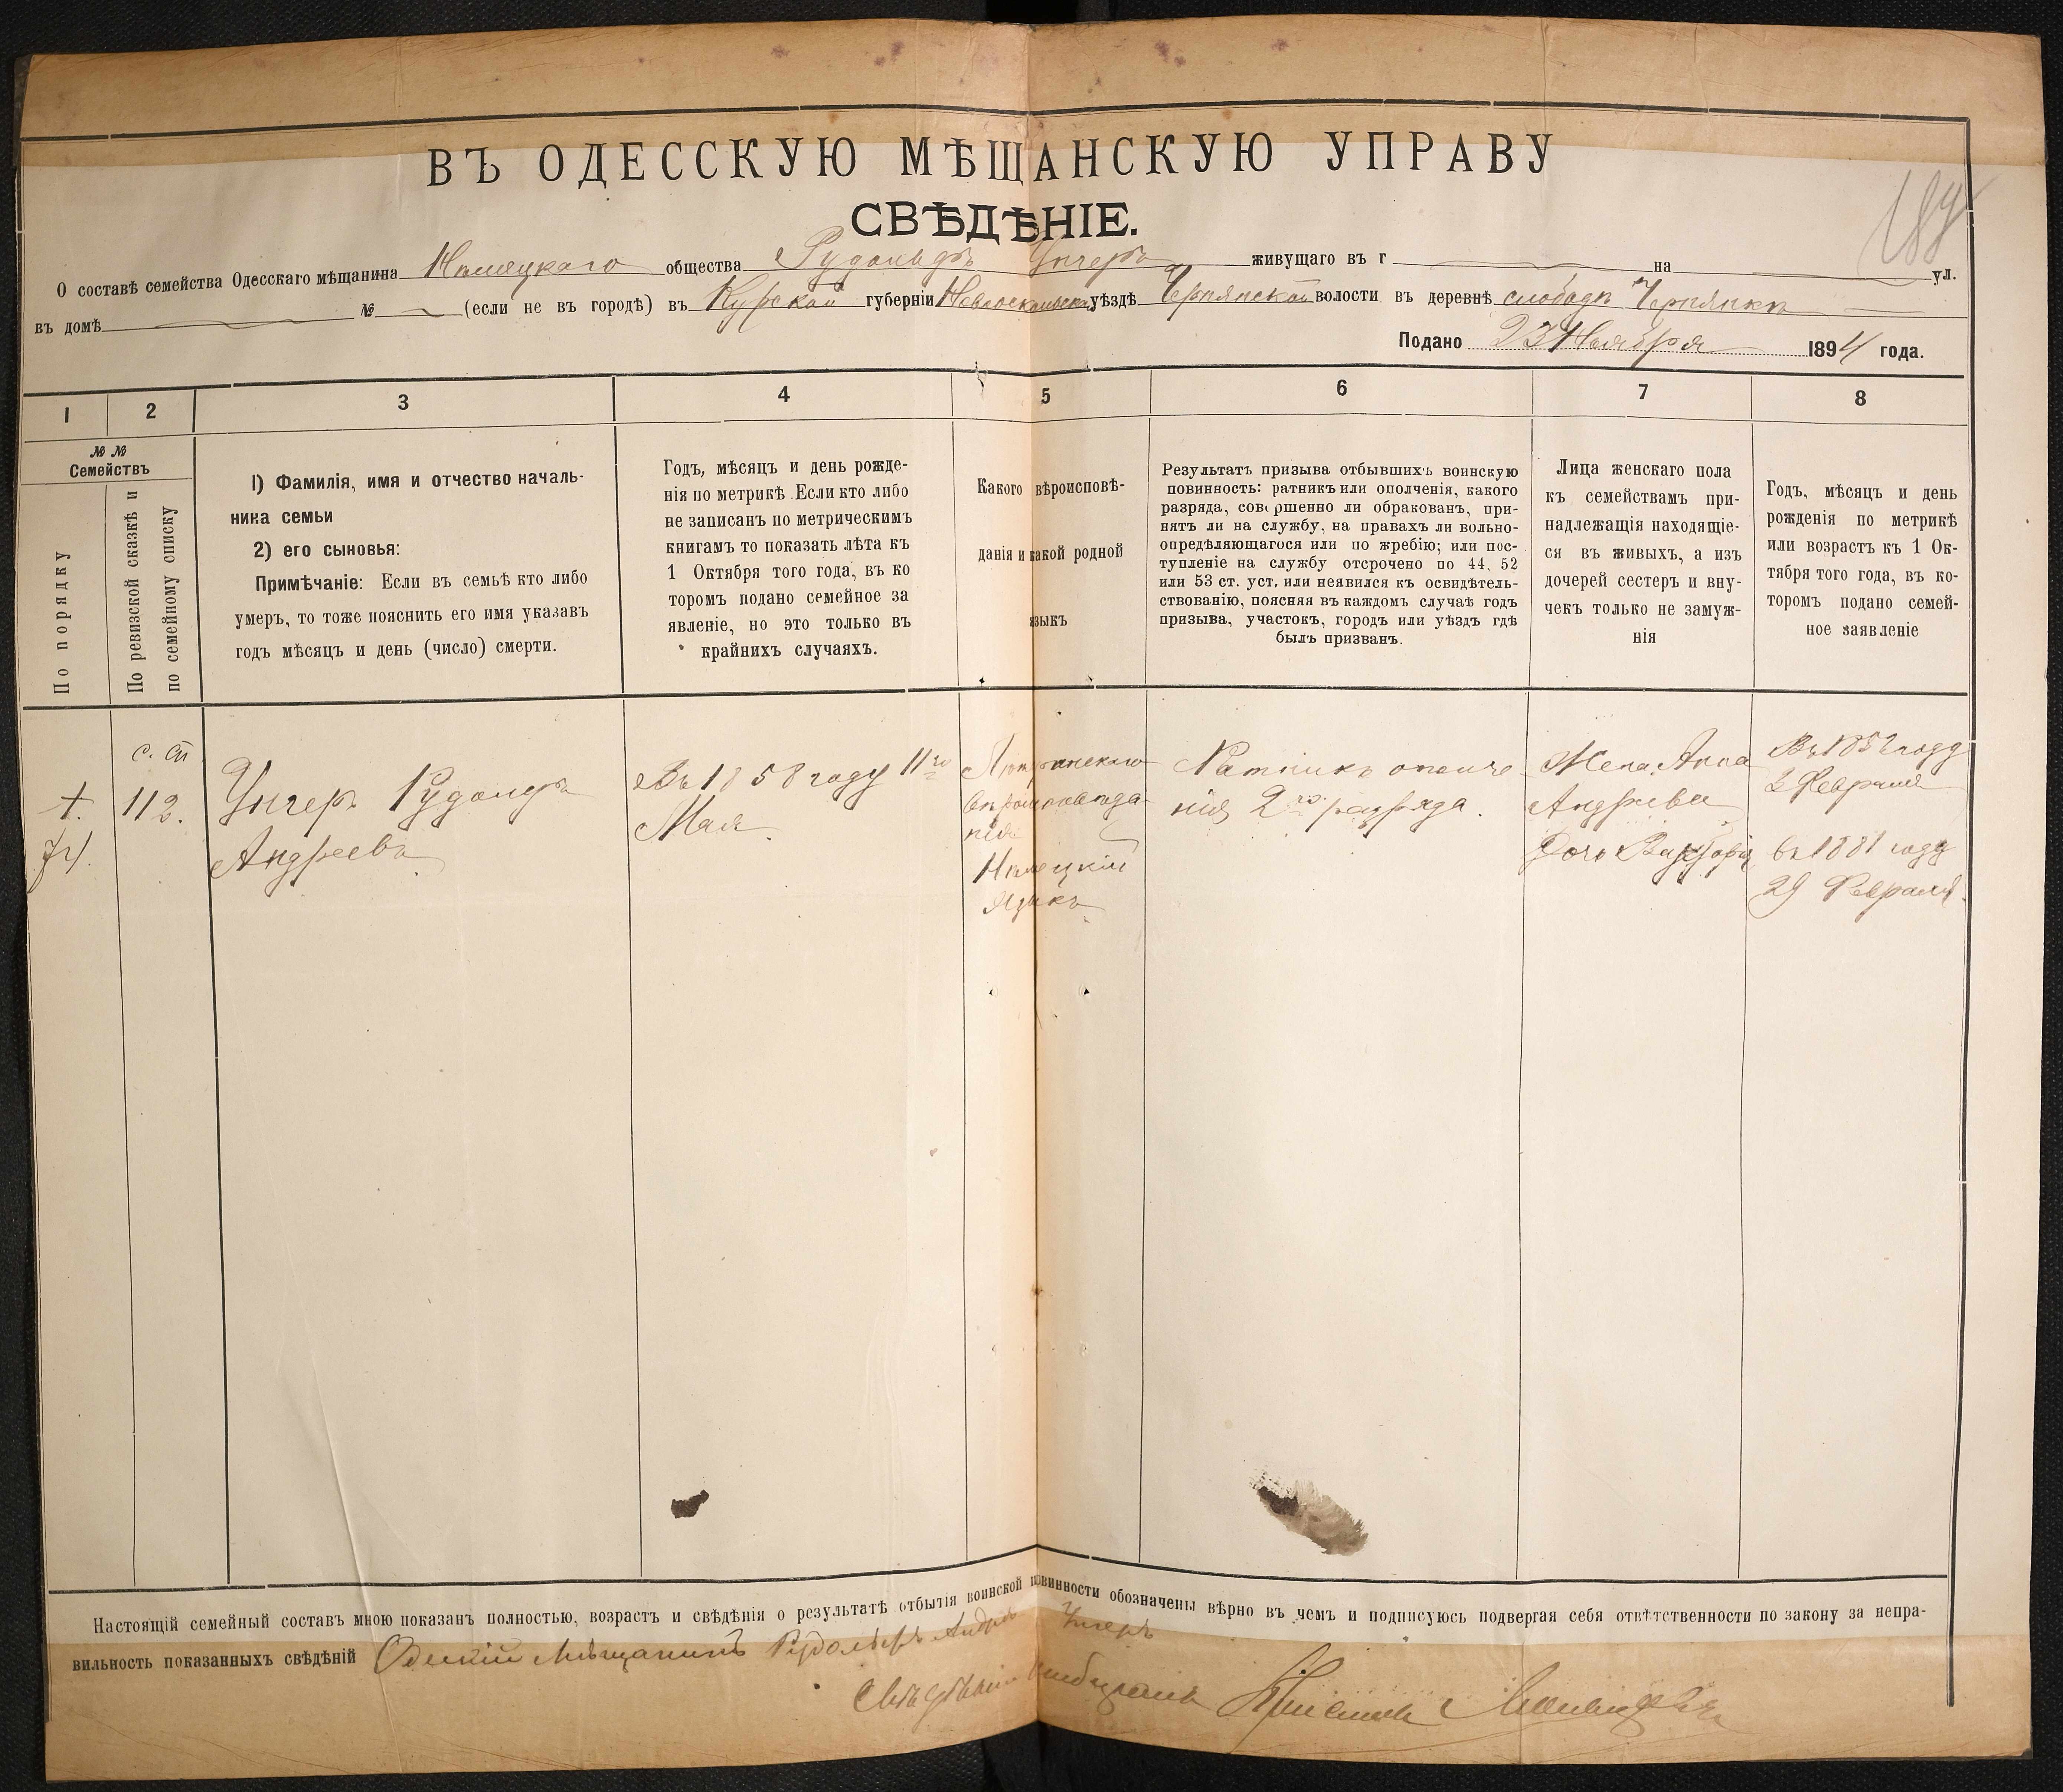 ВЪ ОДЕССКУЮ МѢЩАНСКУЮ УПРАВУ
СВѢДѢНІЕ.
О составѣ семейства Одесскаго мѣщанина Нѣмецкаго общества Рудольфъ Унгеръ живущаго въ г на ул.
въ домѣ № (если не въ городѣ) въ Курской губерніи Новооскольска уѣздѣ Чернянской волости въ деревнѣ слободѣ Чернянкѣ
Подано 23 Ноября 1894 года.
1 2 3 4 5 6 7 8
№ №
Семействъ
По порядку
По ревизской сказкѣ и
по семейному списку
1) Фамилія, имя и отчество началь-
ника семьи
2) его сыновья:
Примѣчаніе: Если въ семьѣ кто либо
умеръ, то тоже пояснить его имя указавъ
годъ мѣсяцъ и день (число) смерти.
Годъ, мѣсяцъ и день рожде-
нія по метрикѣ .Если кто либо
не записанъ по метрическимъ
книгамъ то показать лѣта къ
1 Октября того года, въ ко
торомъ подано семейное за
явленіе, но это только въ
крайнихъ случаяхъ.
Какого вѣроисповѣ-
данія и какой родной
языкъ
Результатъ призыва отбывшихъ воинскую
повинность: ратникъ или ополченія, какого
разряда, совершенно ли обракованъ, при-
нятъ ли на службу, на правахъ ли вольно-
опредѣляющагося или по жребію; или пос-
тупленіе на службу отсрочено по 44, 52
или 53 ст. уст. или неявился къ освидѣтель-
ствованію, поясняя въ каждомъ случаѣ годъ
призыва, участокъ, городъ или уѣздъ гдѣ
былъ призванъ.
Лица женскаго пола
къ семействамъ при-
надлежащія находящіе-
ся въ живыхъ, а изъ
дочерей сестеръ и вну-
чекъ только не замуж-
нія
Годъ, мѣсяцъ и день
рожденія по метрикѣ
или возрастъ къ 1 Ок-
тября того года, въ ко-
торомъ подано семей-
ное заявленіе
с. сп
112.
Унгеръ Рудольфъ
Андреевъ
Въ 1858 году 11го
Мая
Лютеранскаго
вѣроисповѣда
нія
Нѣмецкій
языкъ
Ратникъ ополче
нія 2го разряда.
Жена Анна
Андреева
Дочь
Въ 1852 году
2 Февраля
въ 1881 году
29 Февраля.
Настоящій семейный составъ мною показанъ полностью, возрастъ и свѣдѣнія о результатѣ отбытія воинской повинности обозначены вѣрно въ чемъ и подписуюсь подвергая себя отвѣтственности по закону за непра-
вильность показанныхъ свѣдѣній Одескій Мѣщанинъ Рудольфъ Андре Унгеръ